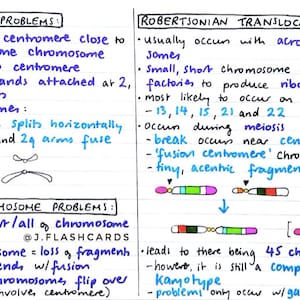 PROBLEMS:
centromere close to
me chromosome
centromere
ands attached at 2,
mes:
splits horizontally
nd 2q arms fuse
MOSOME PROBLEMS:
t/all of chromosome
@J.FLASHCARDS
some = loss of fragment
ends w/fusion
hromosomes flip over
nvolve centromere)
ROBERTSONIAN TRANSLOC
• usually occur with acro
somes
• small, short chromosome
factories to produce ribo
• most likely to occur on
- 13, 14, 15, 21 and 22
• occurs during meiosis
- break occurs near cen
- 'fusion centromere' chro
- tiny, acentric fragmen
• leads to there being 45 ch
- howevr, it is still a comp
karyotype
- problems only occur w/ga